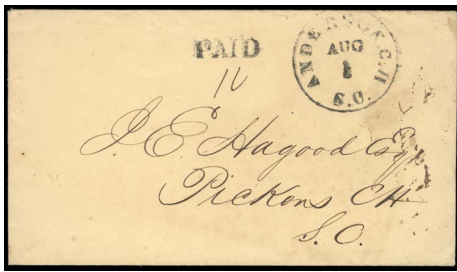 PAID
10
ANDERSON C.H.
AUG
1
S.C.
J E Hagood Esq
Pickens CH
S.C.